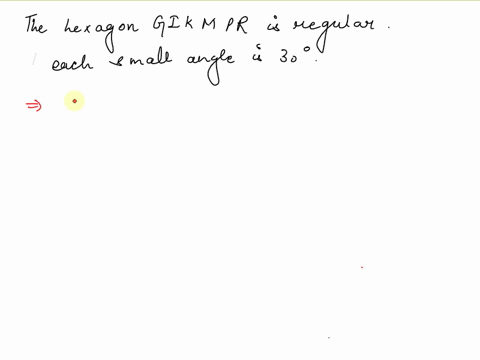 The hexagon GIKMPR is regular.
each small angle is 30°.
⇒